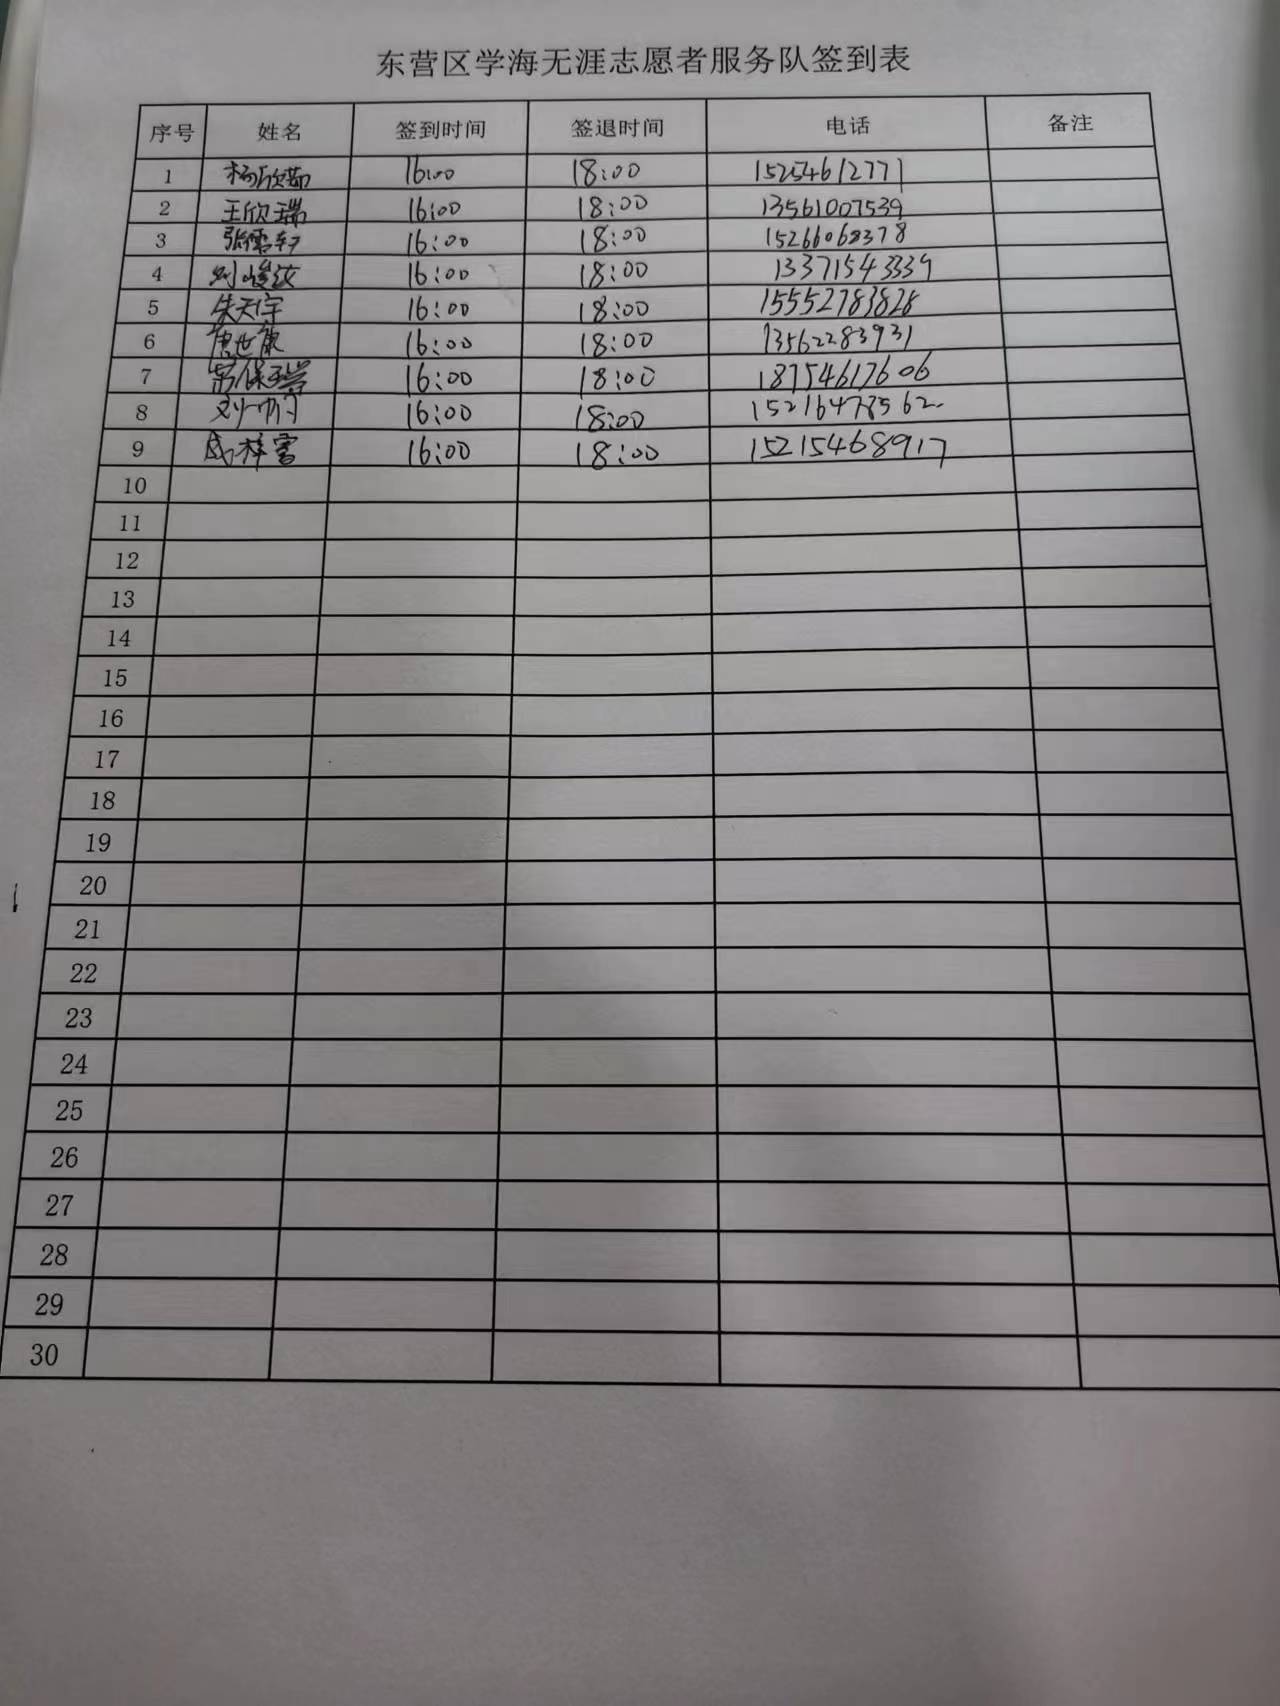 东营区学海无涯志愿者服务队签到表
序号 姓名 签到时间 签退时间 电话 备注
1 杨欣茹 16:00 18:00 15254612771
2 王欣瑞 16:00 18:00 13561007539
3 16:00 18:00 15266068378
4 16:00 18:00 13371543339
5 朱天宇 16:00 18:00 15552783828
6 16:00 18:00 13562283931
7 16:00 18:00 18754617606
8 16:00 18:00
9 16:00 18:00 15215468917
10
11
12
13
14
15
16
17
18
19
20
21
22
23
24
25
26
27
28
29
30